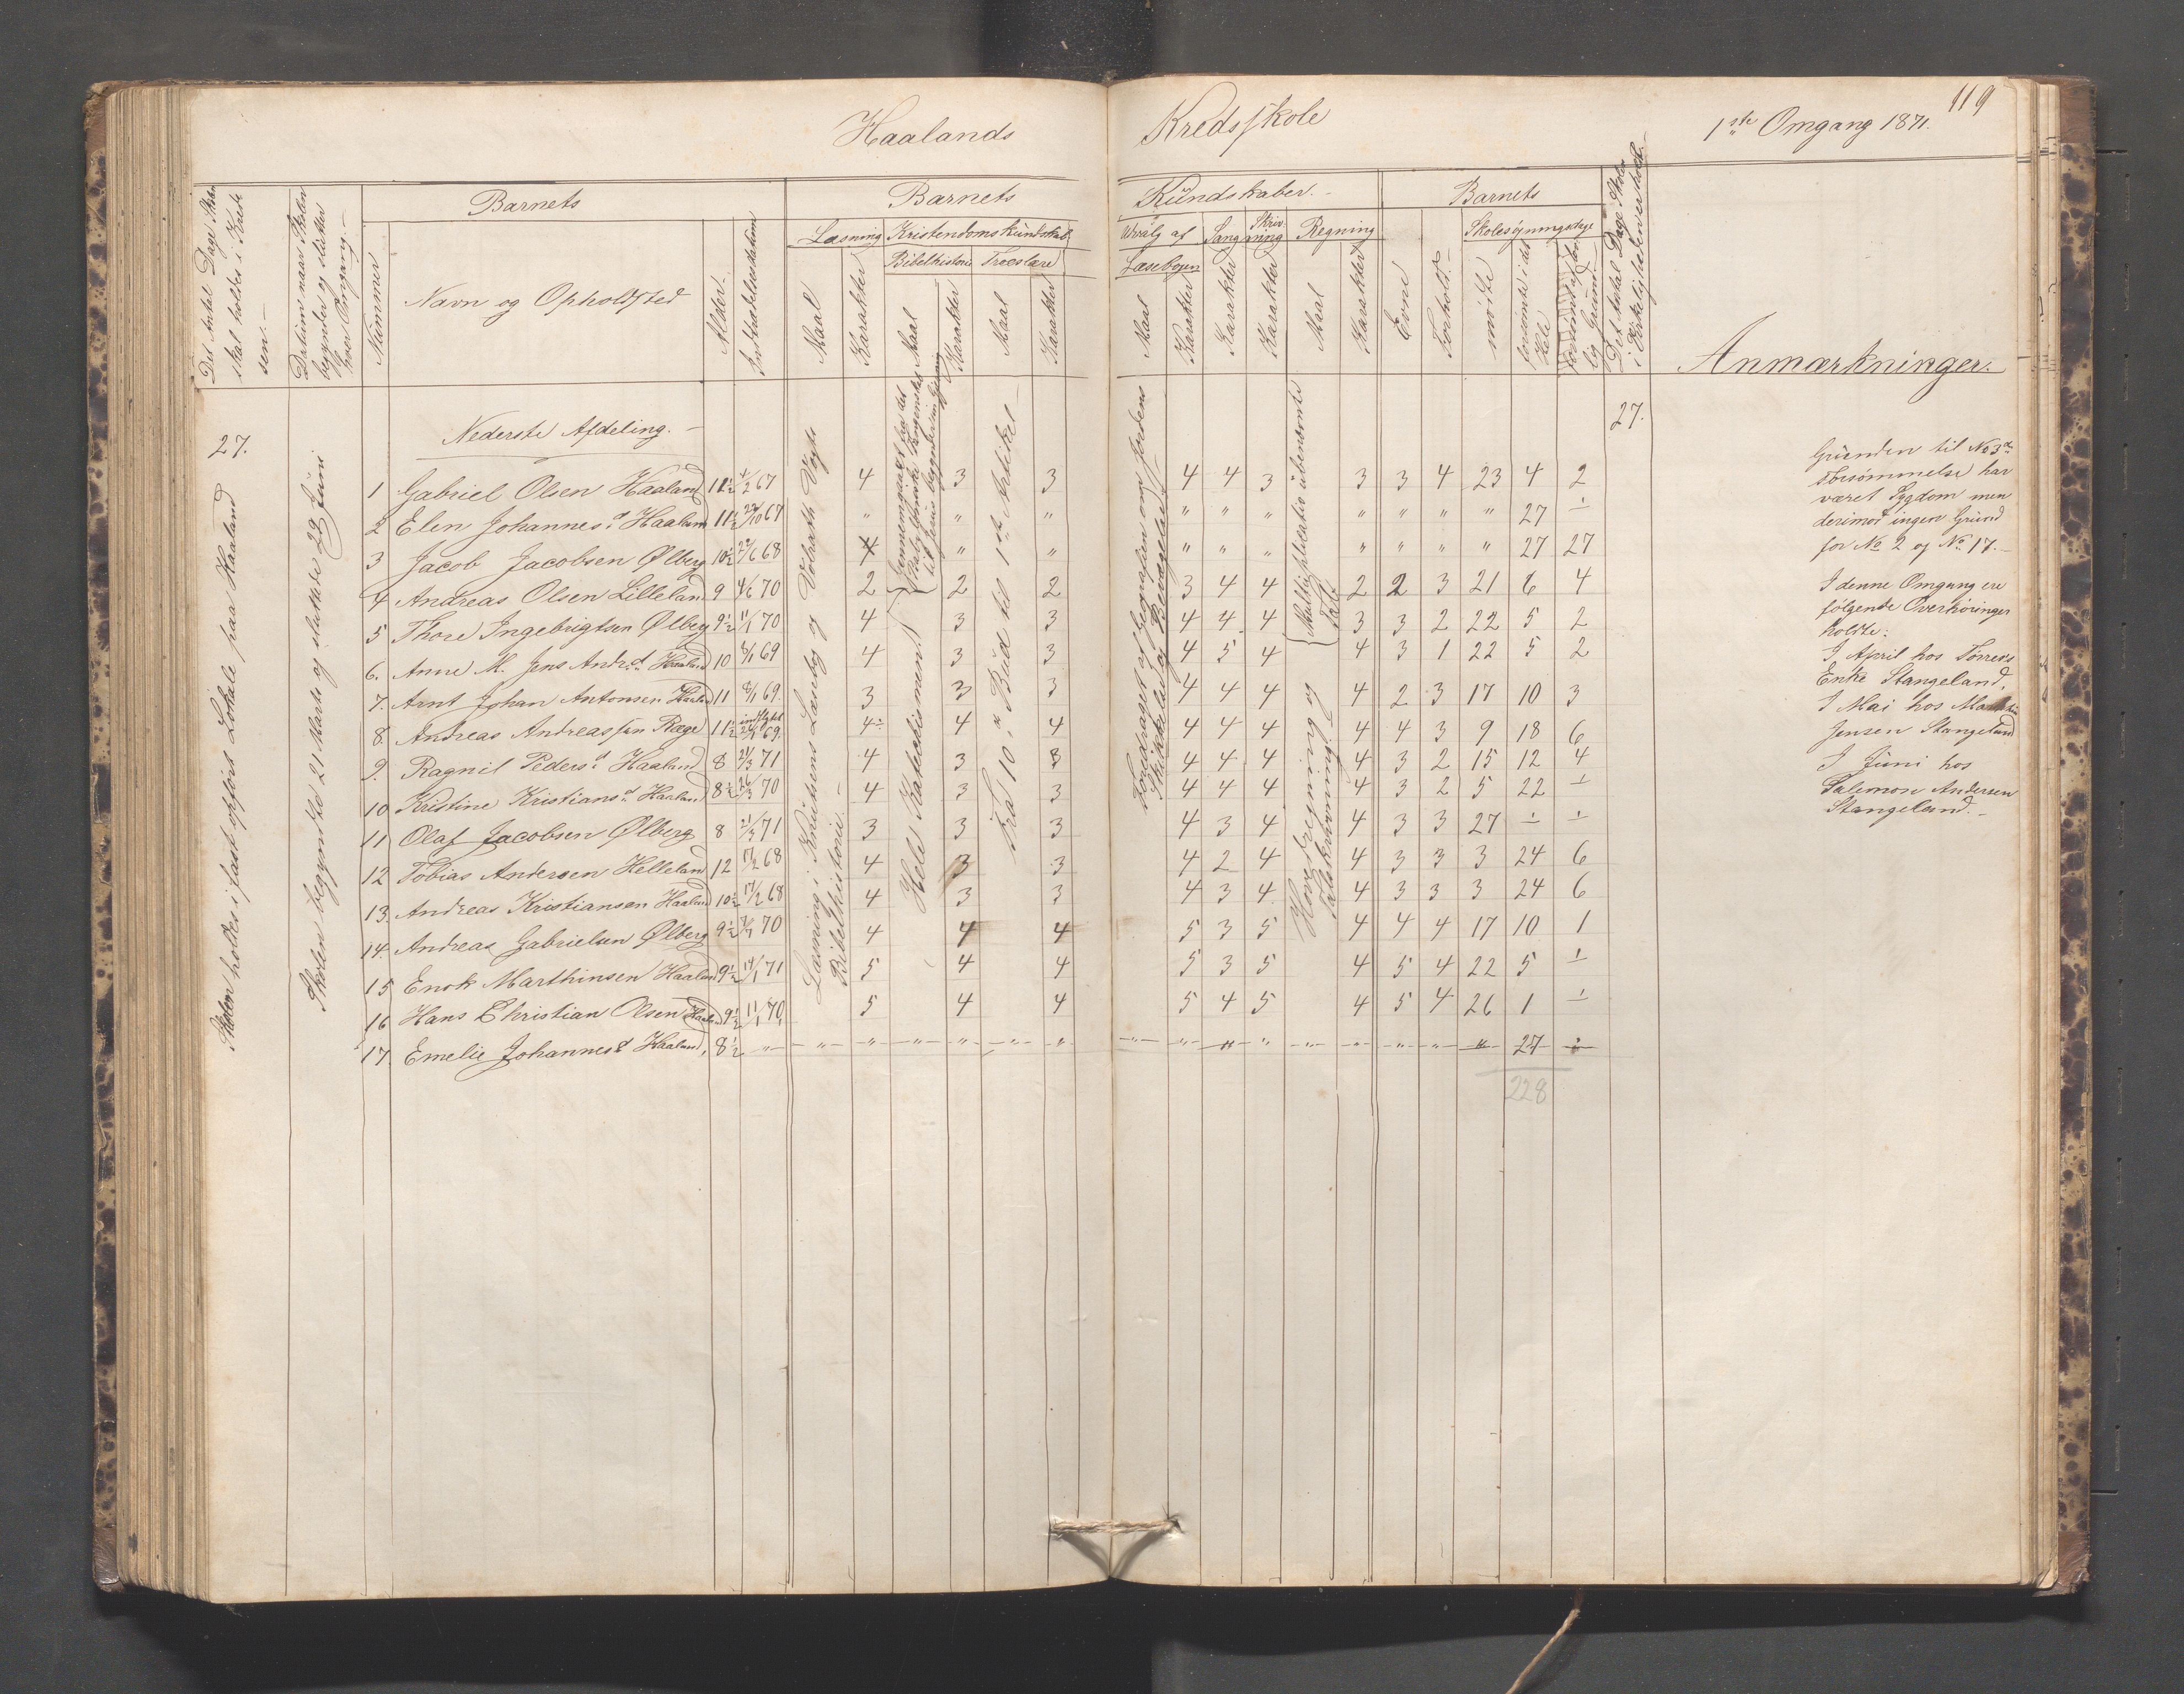 119
Haalands Kredsskole 1ste Omgang 1871.
Det Antal Dage Skolen
skal holdes i Kredsen.
Datum naar Skolen
begynder og slutter
hver Omgang.
Barnets
Nummer
Navn og Opholdssted
Alder.
Indtrædelsesdatum
Barnets Kundskaber.
Læsning
Maal
Karakter
Kristendomskundskab
Bibelhistorie
Maal
Karakter
Troeslære
Maal
Karakter
Udvalg af Læsebogen
Maal
Karakter
Sang
Karakter
Skrivning
Karakter
Regning
Maal
Karakter
Barnets
Evne
Forhold.
Skolesøgningsdage
mødte
forsømte i det Hele
Det Antal Dage Skolen
i Virkeligheden er holdt.
Anmærkninger.
27.
Nederste Afdeling.
27.
Skolen holdes i fast opført Lokale paa Haaland
Skolen begyndte 21 Marts og sluttede 29 Juni
Læsning i Knutsens Læsebog og Volrath Vogts
Bibelhistorie.
Hele Katekismen
Fra 10de Bud til 1ste Artikel
Foredraget af Geografien om Jordens
Skikkelse og Bevægelse
Multiplication ubenævnte
Tal
Hovedregning og
Talskrivning.
1 Gabriel Olsen Haaland 11½ ½ 67 4 3 3 4 4 3 3 3 4 23 4 2
2 Elen Johannesd Haaland 11½ 67 " " " " " " " " " " 27 ÷
3 Jacob Jacobsen Ølberg 10½ 22/6 68 " " " " " " " " " 27 27
4 Andreas Olsen Lilleland 9 4/6 70 2 2 2 3 4 4 2 2 3 21 6 4
5 Thore Ingebrigtsen Ølberg 9½ 11/1 70 4 3 3 4 4 4 3 3 2 22 5 2
6. Anne M. Jens Andrd Haaland 10 8/1 69 4 3 3 4 5 4 4 3 1 22 5 2
7. Arnt Johan Antonsen Haaland 11 8/1 69. 3 3 3 4 4 4 4 2 3 17 10 3
8. Andreas Andreassen Ræge 11½ indflyt 69. 4÷ 4 4 4 4 4 4 4 3 9 18 6
9. Ragnil Pedersd Haaland 8 21/3 71 4 3 3 4 4 4 4 3 2 15 12 4
10 Kristine Kristiansd Haaland 8½ 26/3 70 4 3 3 4 4 4 4 3 2 5 22 ÷
11 Olaf Jacobsen Ølberg 8 21/3 71 3 3 3 4 3 4 4 3 3 27 ÷ ÷
12 Tobias Andersen Helleland 12 17/2 68 4 3 3 4 2 4 4 3 3 3 24 6
13. Andreas Kristiansen Haaland 10½ 17/2 68 4 3 3 4 3 4 4 3 3 3 24 6
14. Andreas Gabrielsen Ølberg 9½ 70 4 4 4 5 3 5 4 4 4 17 10 1
15 Enok Marthinsen Haaland 9½ 14/1 71 5 4 4 5 3 5 4 5 4 22 5 ÷
16 Hans Christian Olsen Haaland 9½ 11/1 70, 5 4 4 5 4 5 4 5 4 26 1 ÷
17. Emelie Johannesd Haaland, 8½ " " " " " " " " " " " " " " " " 27 ÷
228
Grunden til No 3s
Forsømmelse har
været Sygdom men
derimod ingen Grund
for No 2 og No 17.
I denne Omgang ere
følgende Overhøringer
holdte:
I April hos Tørres
Enke Stangeland.
I Mai hos
Jensen Stangeland
I Juni hos
Salemon Andersen
Stangeland.